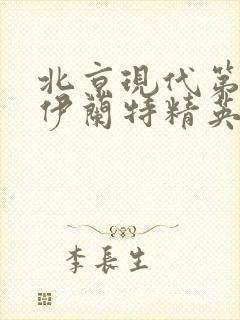 北京現代第
伊蘭特精英
李長生